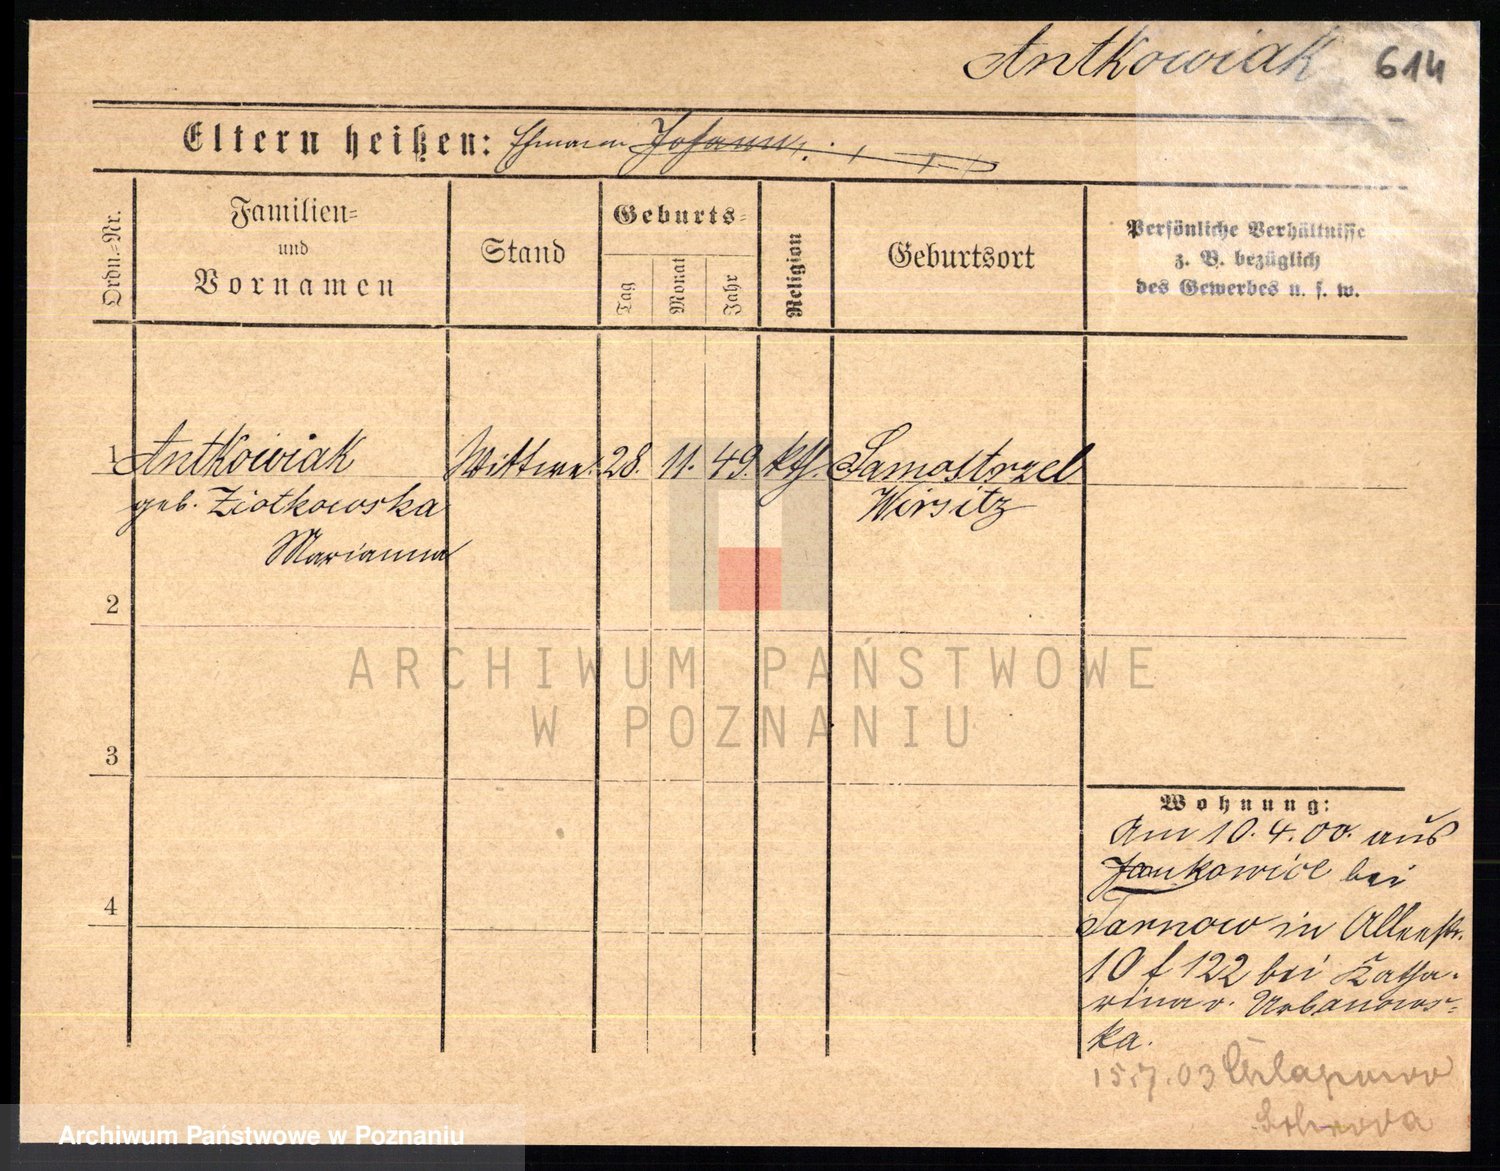 Antkowiak 614
Eltern heißen: Ehmann Johann
Ordn.-Nr.
Familien-
und
Vornamen
Stand
Geburts-
Tag
Monat
Jahr
Religion
Geburtsort
Persönliche Verhältnisse
z. B. bezüglich
des Gewerbes u. s. w.
1 Antkowiak Wittwe. 28. 11. 49. kth. Samostrzel
geb. Ziołkowska Wirsitz
Marianna
2
3
4
Wohnung:
Am 10.4.00. aus
Jankowice bei
Tarnow in Alleestr.
10 f 122 bei Katha-
rina v. Urbanows-
ka.
15.7.03
ARCHIWUM PAŃSTWOWE
W POZNANIU
Archiwum Państwowe w Poznaniu